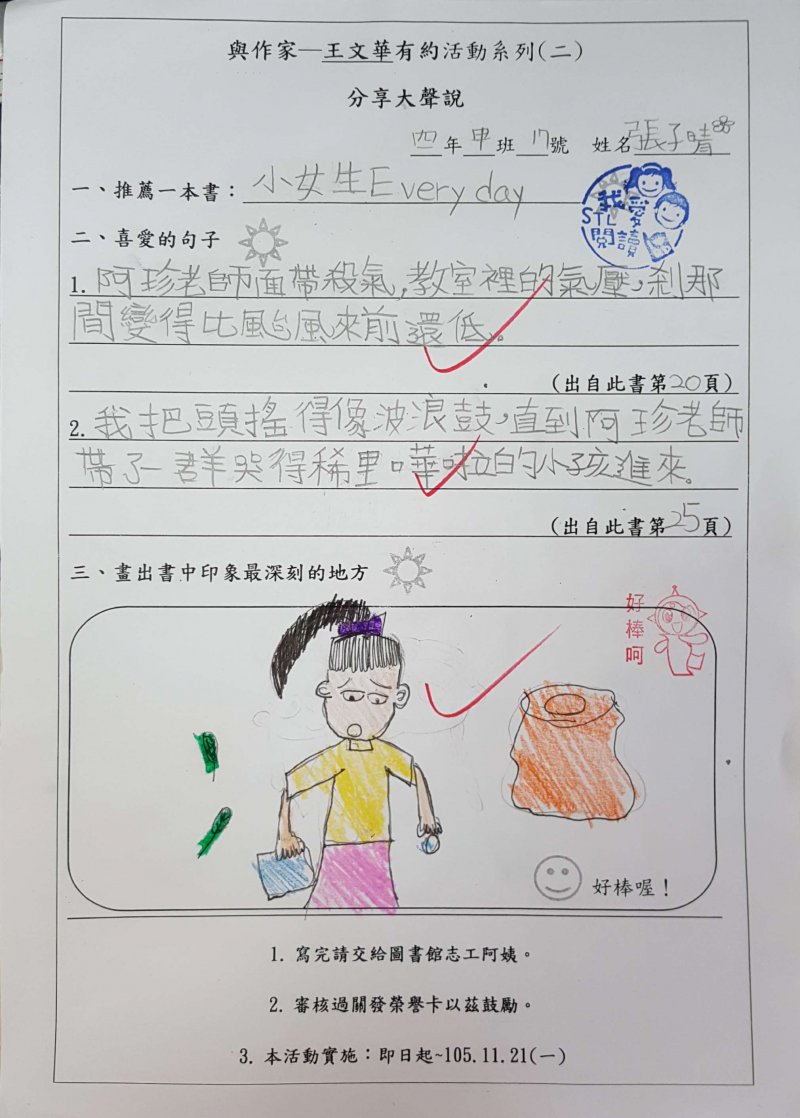 與作家—王文華有約活動系列(二)
分享大聲說
四年甲班17號 姓名張子晴
一、推薦一本書：小女生Every day
我愛
STL
閱讀
二、喜愛的句子
1.阿珍老師面帶殺氣,教室裡的氣壓,剎那
間變得比颱風來前還低。
(出自此書第20頁)
2.我把頭搖得像波浪鼓,直到阿珍老師
帶了一群哭得稀里嘩啦的小孩進來。
(出自此書第25頁)
三、畫出書中印象最深刻的地方
好棒呵
好棒喔！
1. 寫完請交給圖書館志工阿姨。
2. 審核過關發榮譽卡以茲鼓勵。
3. 本活動實施：即日起~105.11.21(一)